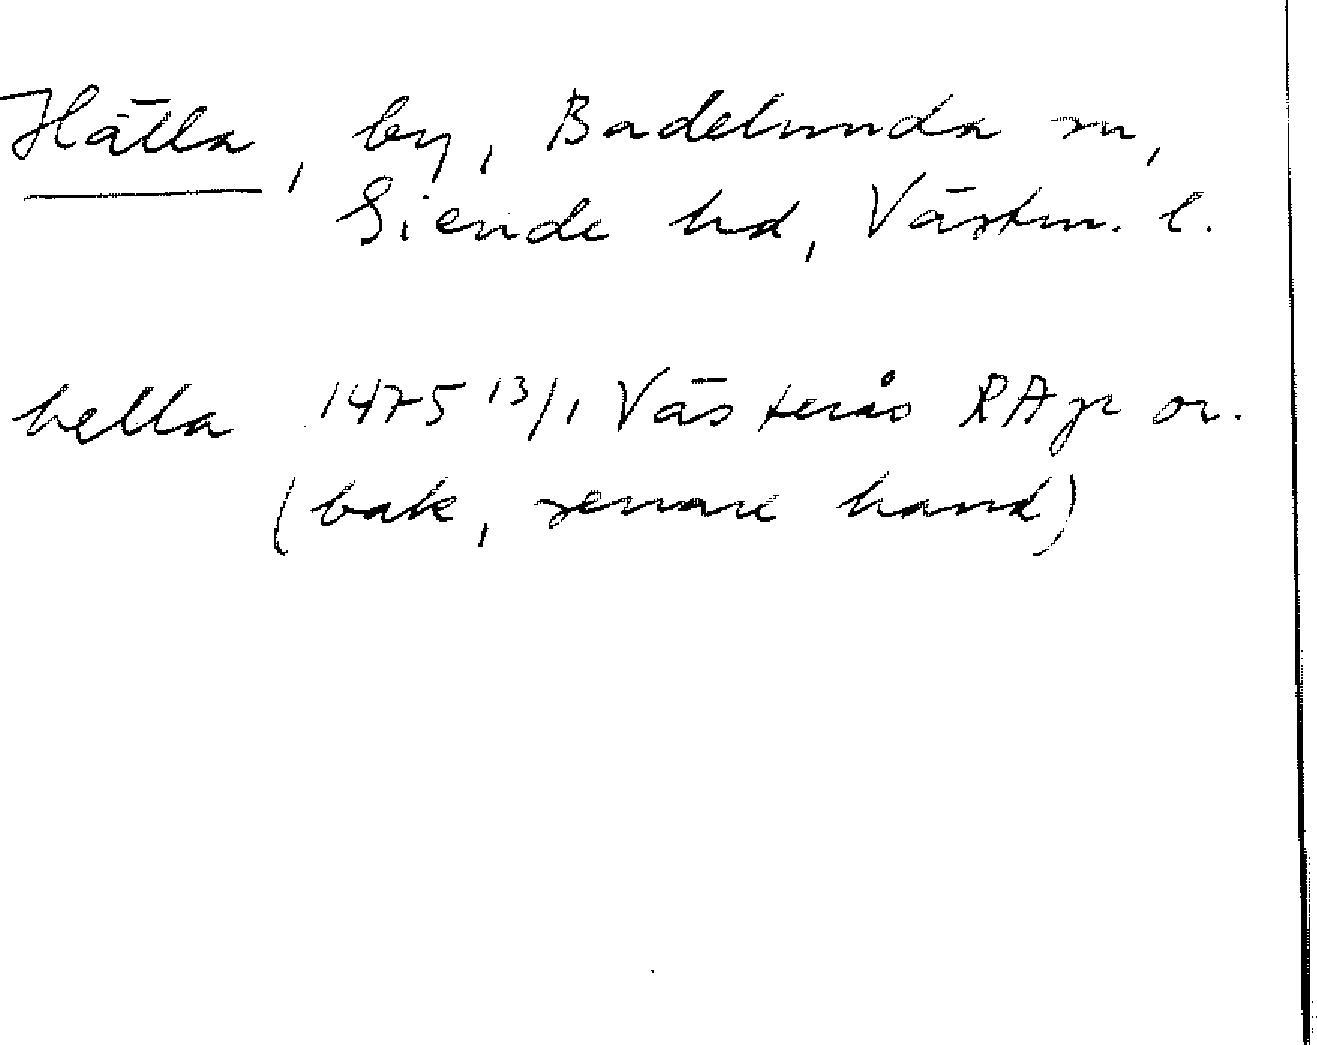 Hälla, by, Badelunda sn,
Siende hd, Västm. l.
hella 1475 13/1 Västerås RAp or.
(bak, senare hand)